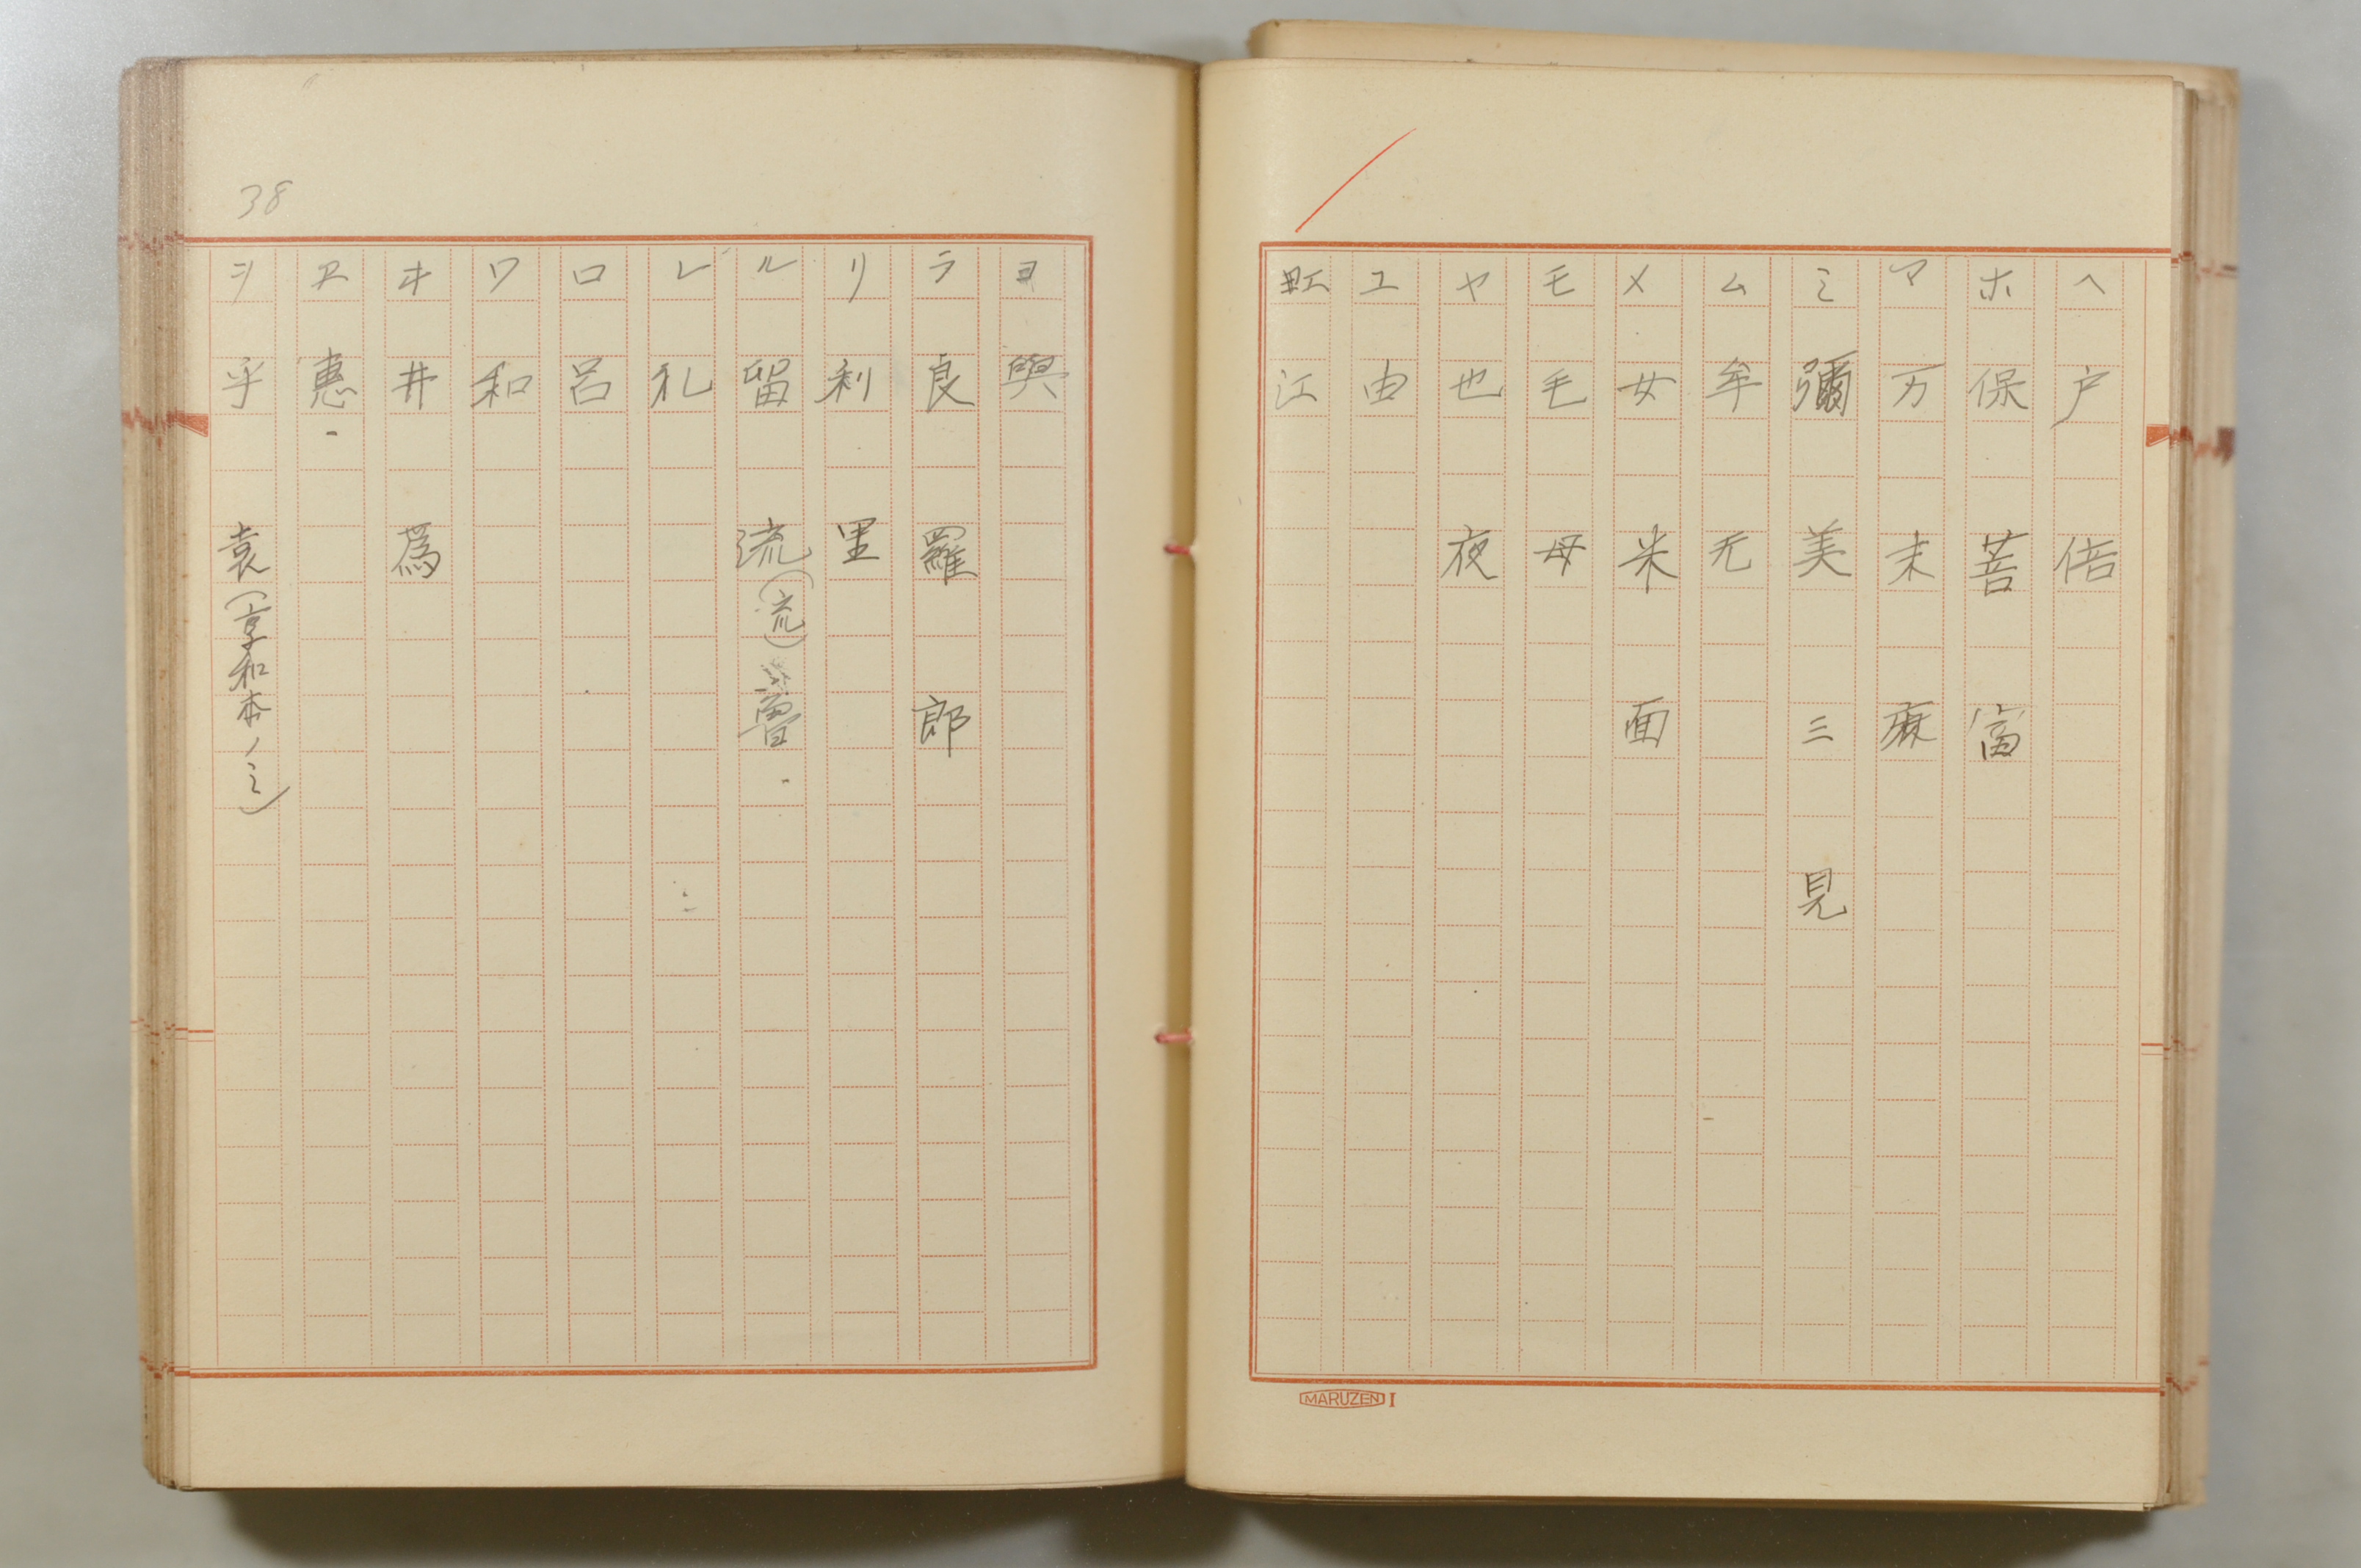 ヘ 戸 倍
ホ 保 菩 富
マ 万 末 麻
ミ 彌 美 三 見
ム 牟 无
メ 女 米 面
モ 毛 母
ヤ 也 夜
ユ 由
江
MARUZEN I
38
ヨ 與
ラ 良 羅 郎
リ 利 里
ル 留 流(流) 魯
レ 礼
ロ 呂
ワ 和
ヰ 井 爲
ヱ 惠
ヲ 乎 袁(享和本ノミ)